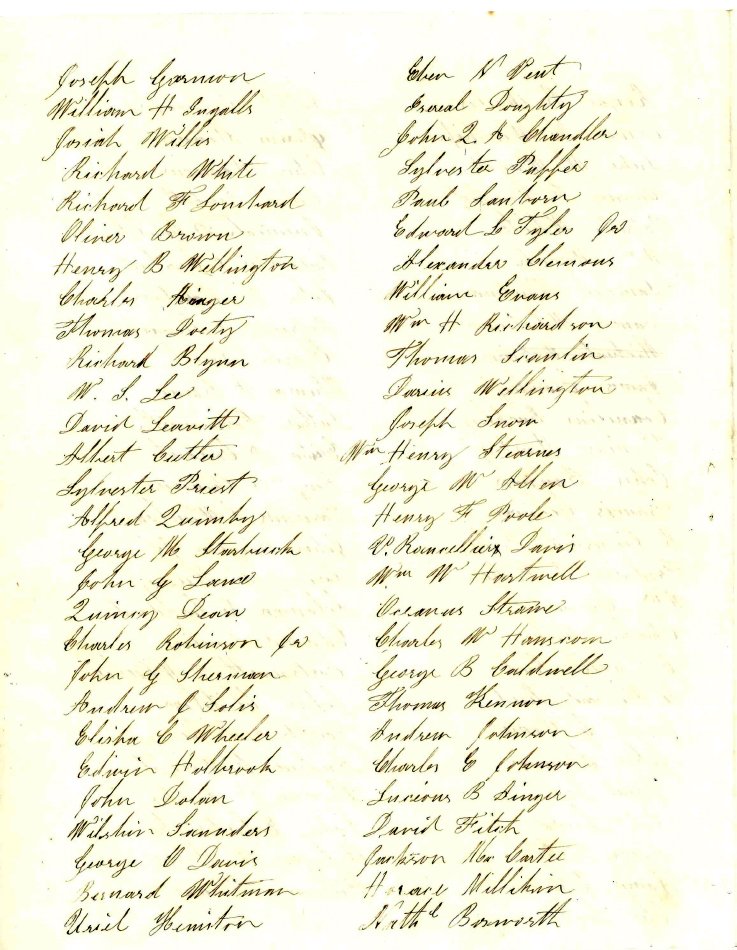 Joseph Gormon
William H Ingalls
Josiah Willis
Richard White
Richard F Lombard
Oliver Brown
Henry B Wellington
Charles Hinger
Thomas Doety
Richard Blynn
W. S. Lee
David Leavitt
Albert Cutler
Sylvester Priest
Alfred Quimby
George M Starbuck
John G Lane
Quincy Dean
Charles Robinson Jr
John G Sherman
Andrew J Solis
Elisha C Wheeler
Edwin Holbrook
John Dolan
Saunders
George O Davis
Bernard Whitman
Uriel Heniston
Eben N Pent
Doughty
John Q A Chandler
Sylvester Puffer
Paul Sanborn
Edward L Tyler Jr
Alexander Clemons
William Evans
Wm H Richardson
Thomas Scanlin
Darius Wellington
Joseph Snow
Wm Henry Stearnes
George W Allen
Henry F Poole
Davis
Wm W Hartwell
Oceanus Strawe
Charles W Hanscom
George B Caldwell
Thomas Kennon
Andrew Johnson
Charles E Johnson
Lucious B Hinger
David Fitch
Jackson Mc Cartee
Horace Millikin
Nathl Bosworth